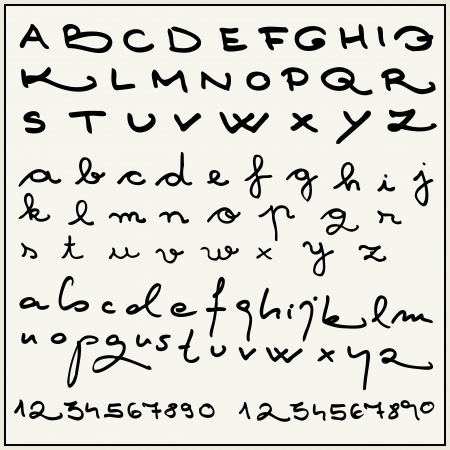 A B C D E F G H I J
K L M N O P Q R
S T U V W X Y Z
a b c d e f g h i j
k l m n o p q r
s t u v w x y z
a b c d e f g h i j k l m
n o p q u s t u v w x y z
1 2 3 4 5 6 7 8 9 0 1 2 3 4 5 6 7 8 9 0